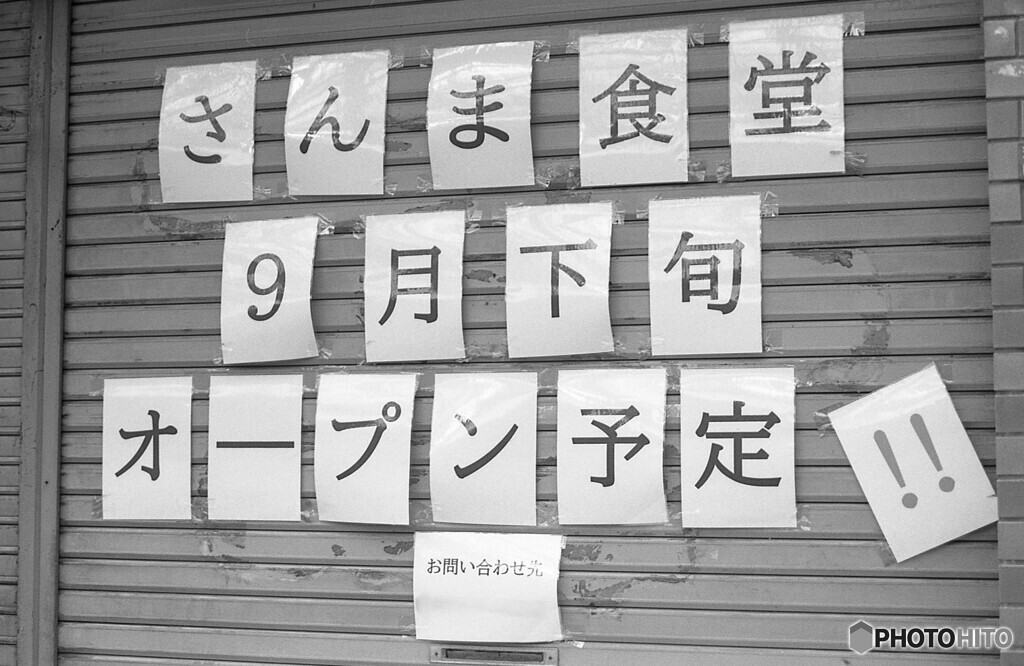 さんま食堂
9月下旬
オープン予定!!
お問い合わせ先
PHOTOHITO